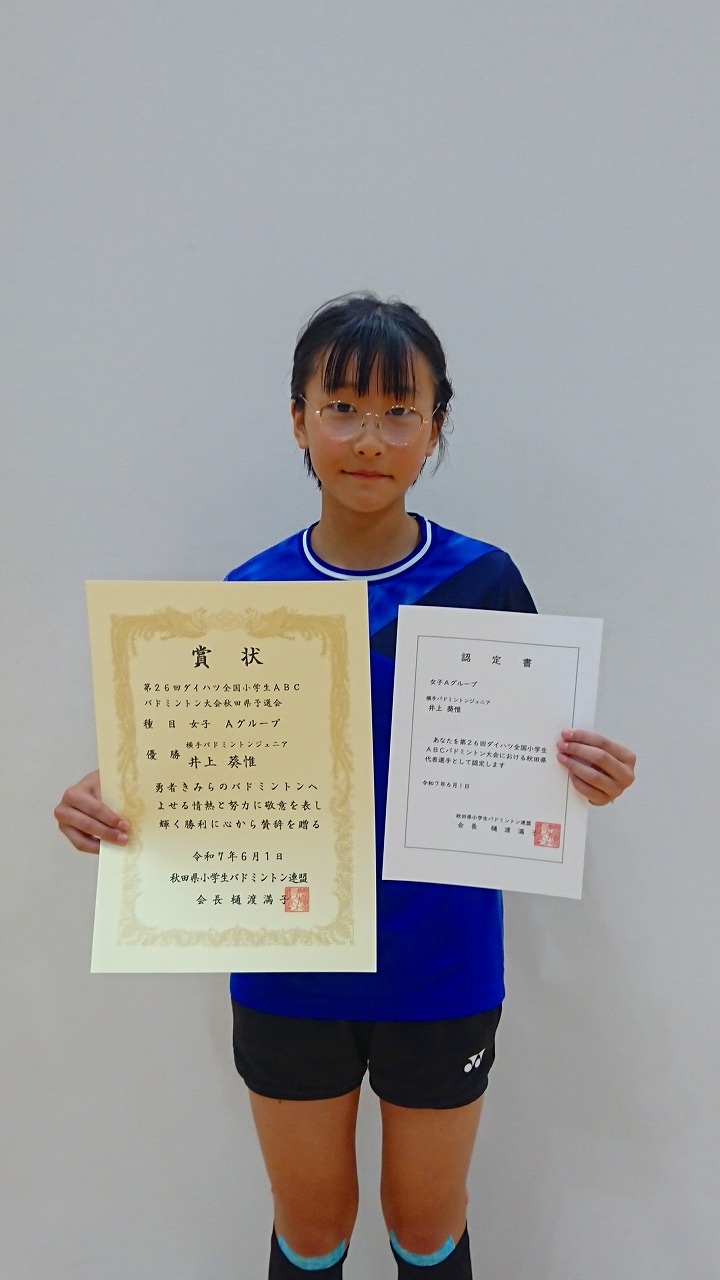 賞 状
第26回ダイハツ全国小学生ABC
バドミントン大会秋田県予選会
種 目 女子 Aグループ
横手バドミントンジュニア
優 勝 井上 葵惟
勇者きみらのバドミントンへ
よせる情熱と努力に敬意を表し
輝く勝利に心から賛辞を贈る
令和7年6月1日
秋田県小学生バドミントン連盟
会 長 樋 渡 満 子
認 定 書
女子Aグループ
横手バドミントンジュニア
井上 葵惟
あなたを第26回ダイハツ全国小学生
ABCバドミントン大会における秋田県
代表選手として認定します
令和7年6月1日
秋田県小学生バドミントン連盟
会 長 樋 渡 満